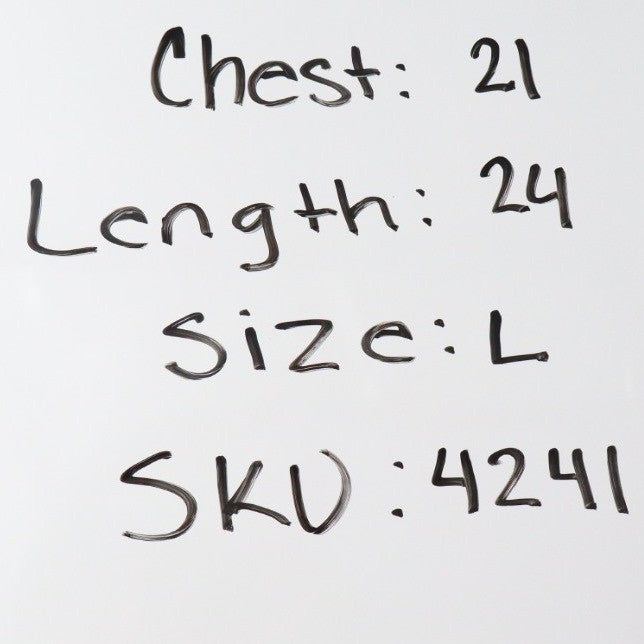 Chest: 21
Length: 24
Size: L
SKU: 4241